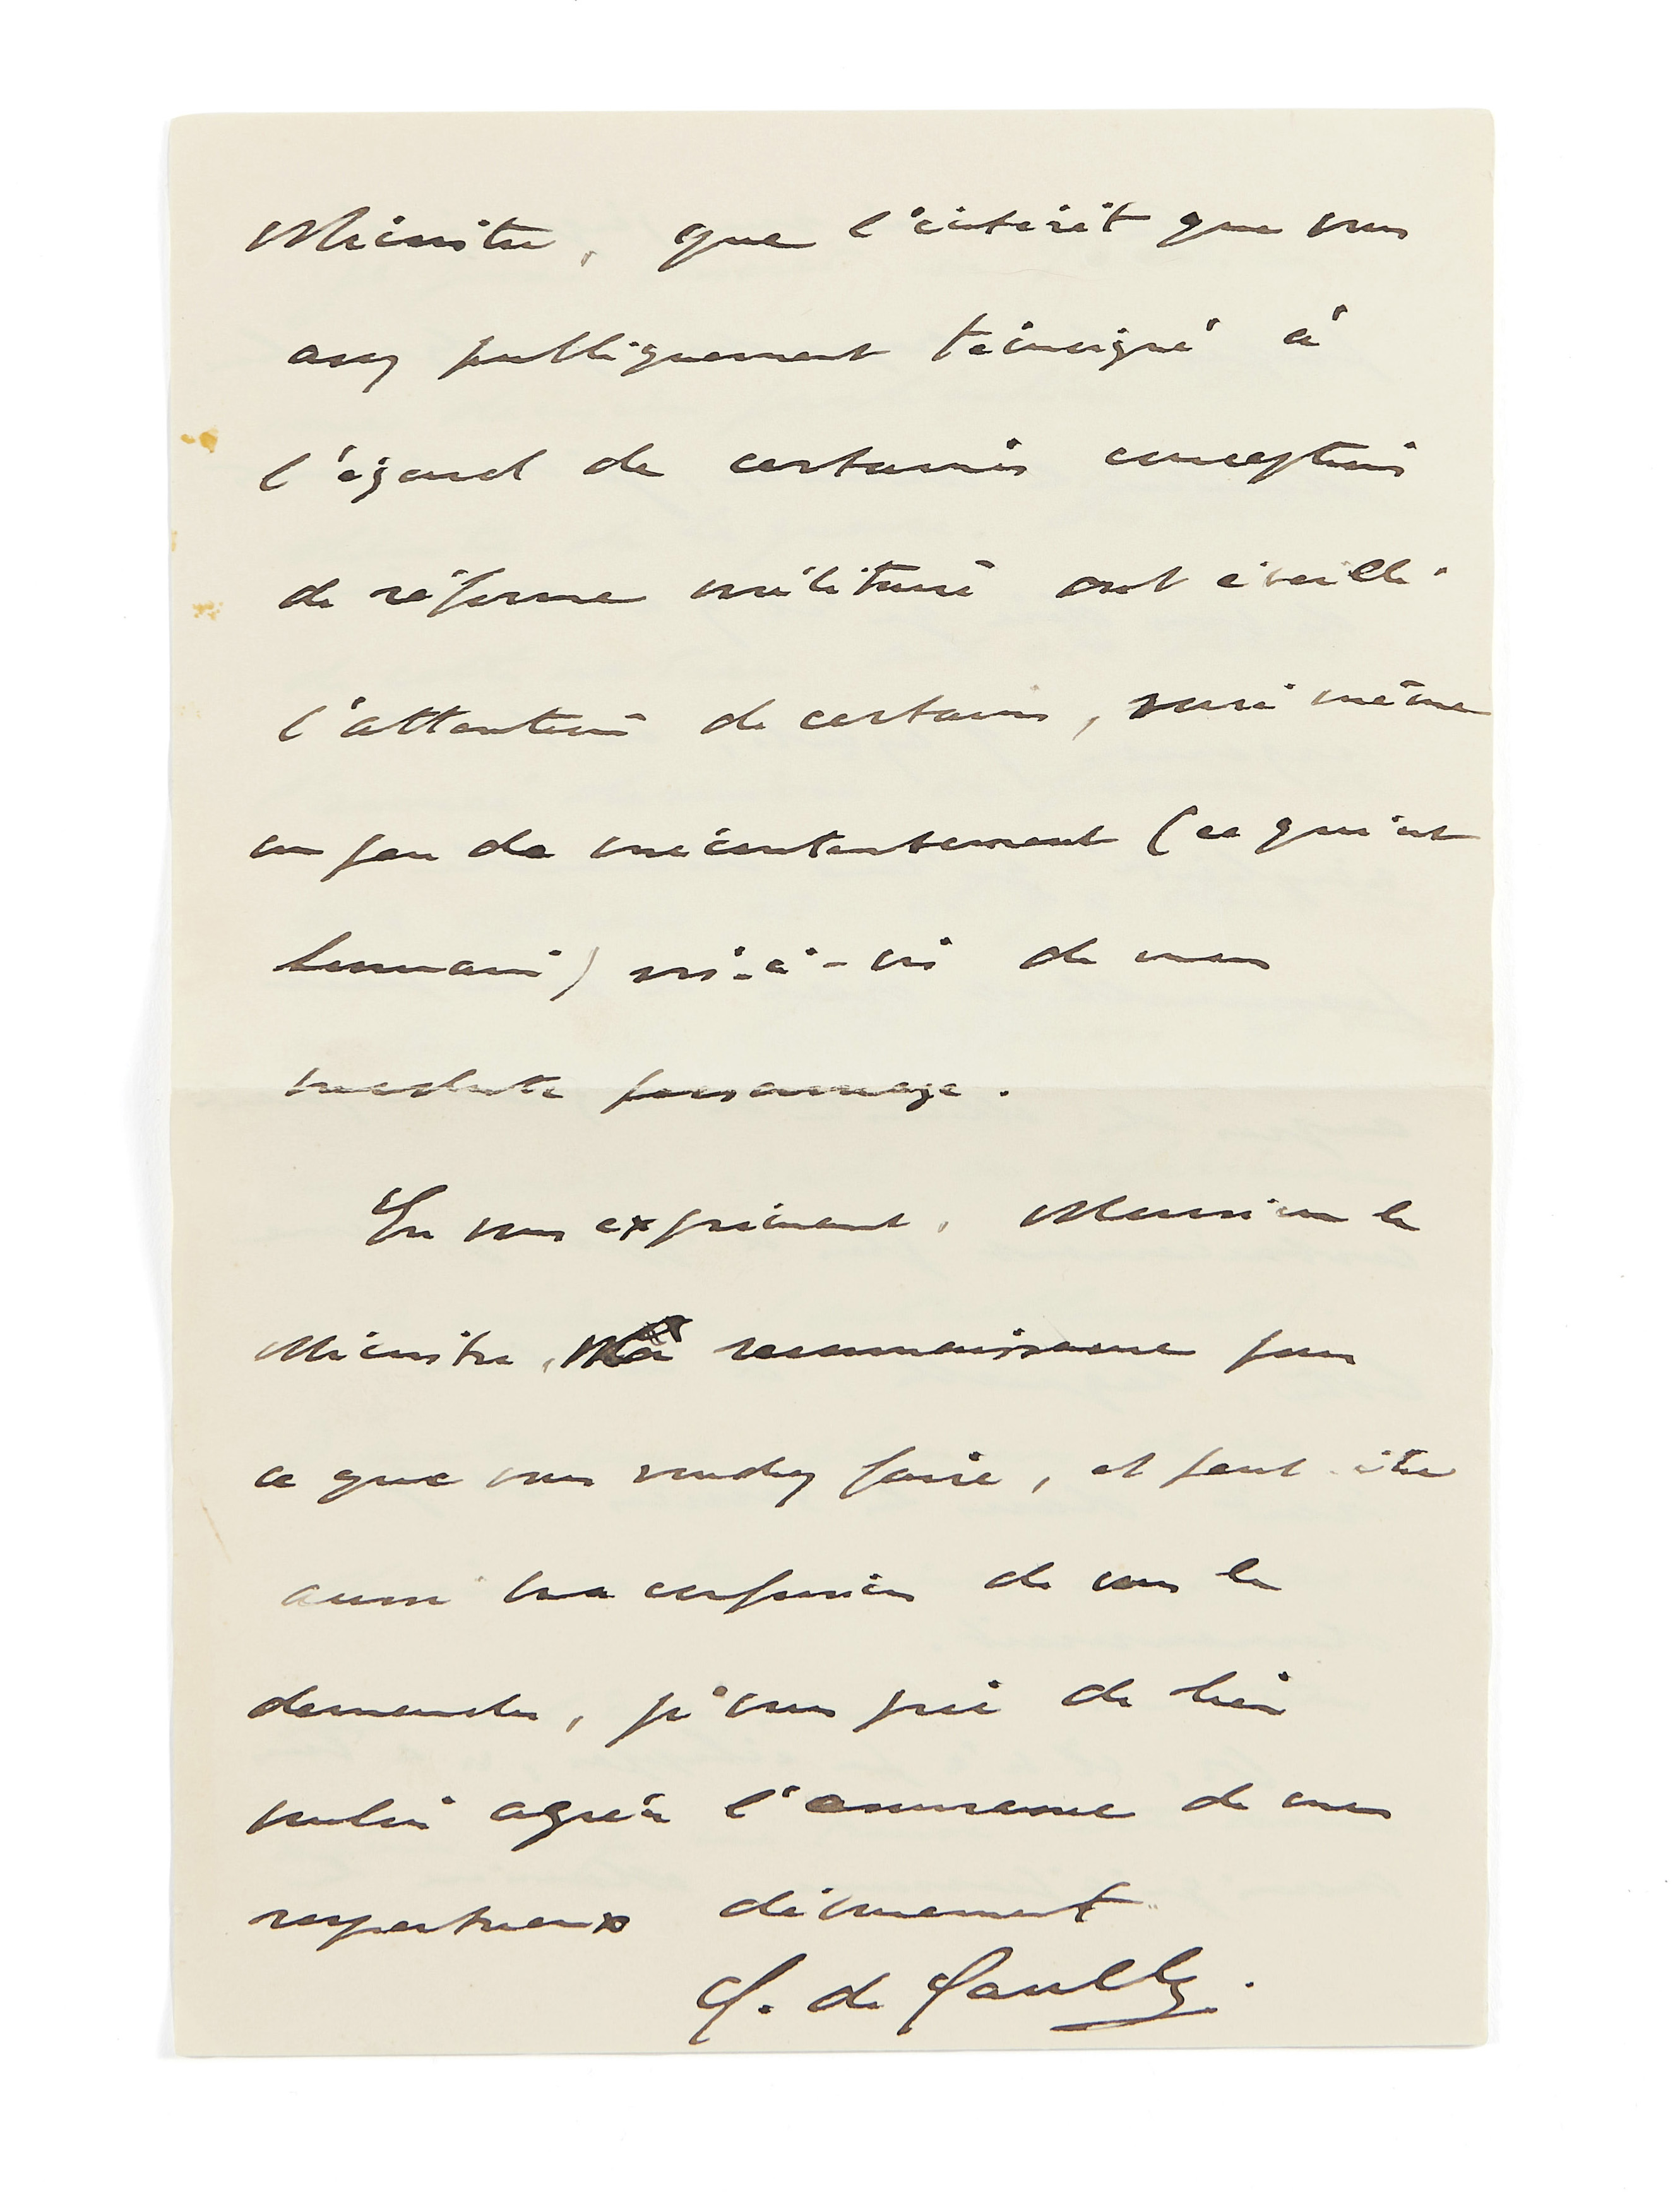 Ministre, que l'intérêt que vous
avez publiquement témoigné à
l'égard de certaines conceptions
de réforme militaire ont éveillé
l'attention de certains, voire même
un peu de mécontentement (ce qui est
humain) vis-à-vis de mon
modeste personnage.
En vous exprimant, Monsieur le
Ministre, ma reconnaissance pour
ce que vous voudrez faire, et peut-être
aussi ma confusion de vous le
demander, je vous prie de bien
vouloir agréer l'assurance de mon
respectueux dévouement
C. de Gaulle.